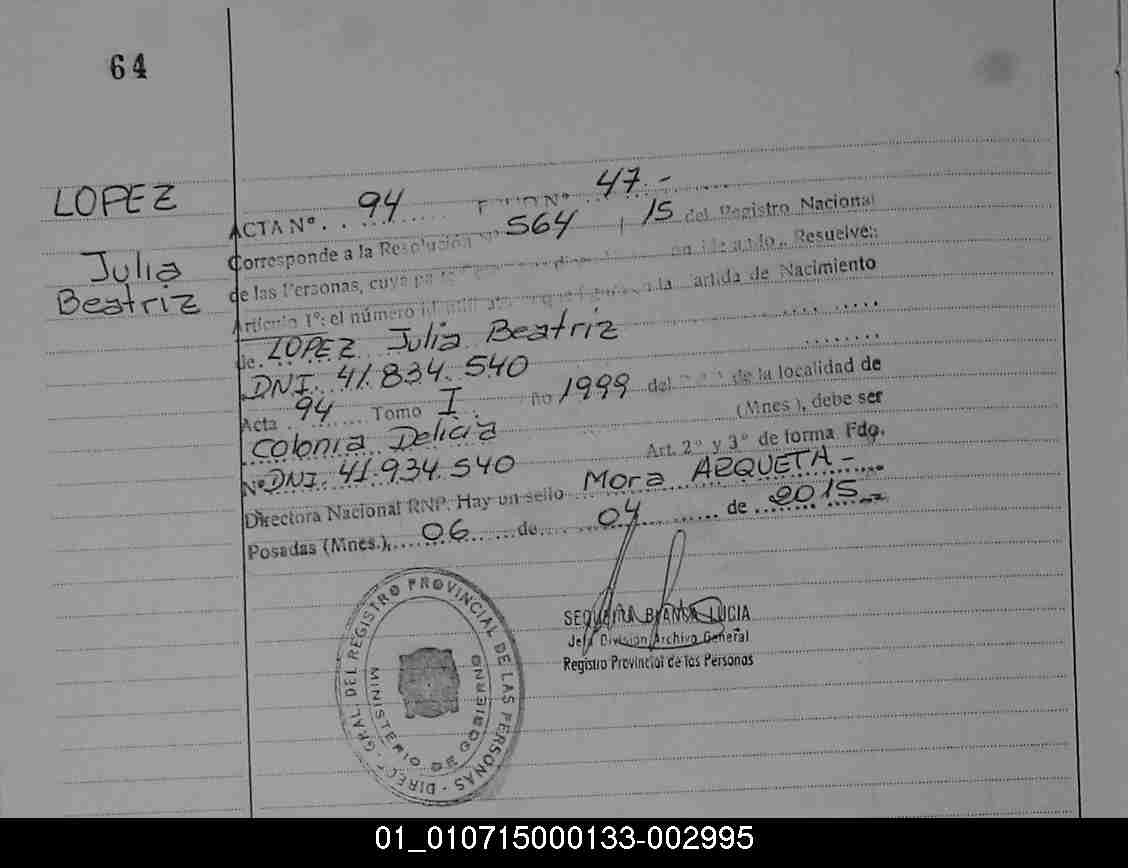 64
LOPEZ
Julia
Beatriz
ACTA Nº. . 94 ..... Nº. 47.-
Corresponde a la Resolución Nº 564 / 15 del Registro Nacional
de las Personas, cuya Resuelve:
Artículo 1º: el número Partida de Nacimiento
de. LOPEZ Julia Beatriz
DNI. 41.834.540
Acta 94 Tomo I. 1999 del de la localidad de
Colonia Delicia (Mnes), debe ser
Nº DNI. 41.934.540 Art. 2º y 3º de forma Fdo.
Directora Nacional RNP. Hay un sello Mora ARQUETA-
Posadas (Mnes.), 06 de 04 de 2015
LUCIA
Jefe División Archivo General
Registro Provincial de las Personas
DIRECC. GRAL. DEL REGISTRO PROVINCIAL DE LAS PERSONAS
MINISTERIO DE GOBIERNO
01_010715000133-002995